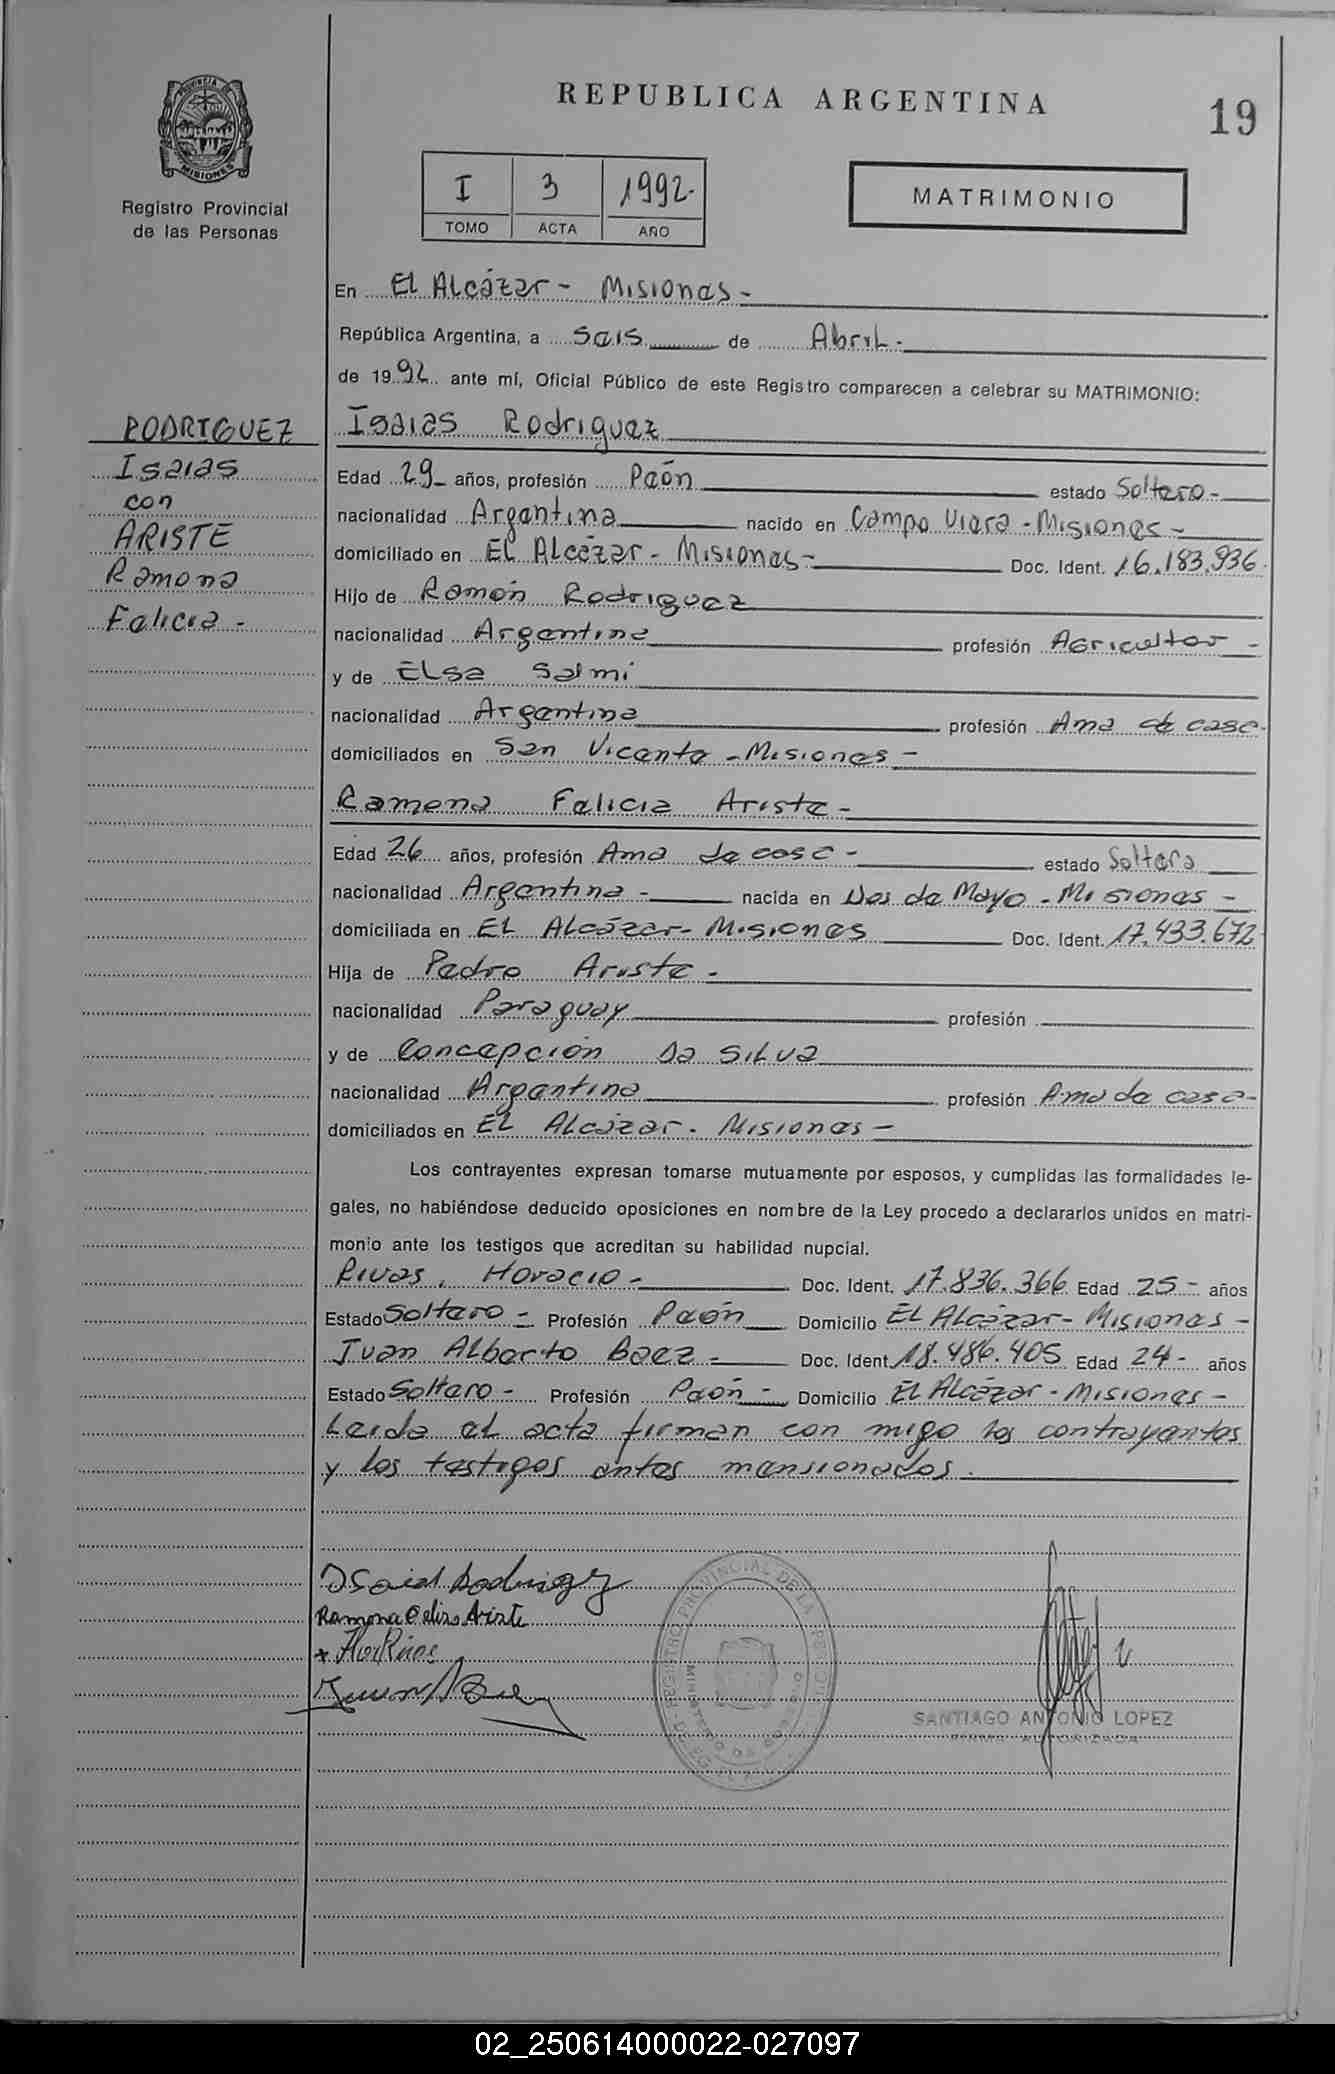 REPUBLICA ARGENTINA
19
PROVINCIA DE MISIONES
Registro Provincial
de las Personas
I 3 1992-
TOMO ACTA AÑO
MATRIMONIO
En El Alcázar - Misiones -
República Argentina, a seis de Abril -
de 1992 ante mí, Oficial Público de este Registro comparecen a celebrar su MATRIMONIO:
RODRIGUEZ
Isaias
con
ARISTE
Ramona
Felicia -
Isaias Rodriguez
Edad 29 años, profesión Peón estado Soltero -
nacionalidad Argentina nacido en Campo Viera - Misiones -
domiciliado en El Alcázar - Misiones - Doc. Ident. 16.183.936.
Hijo de Ramón Rodriguez
nacionalidad Argentina profesión Agricultor -
y de Elsa Salmi
nacionalidad Argentina profesión Ama de casa -
domiciliados en San Vicente - Misiones -
Ramona Felicia Ariste -
Edad 26 años, profesión Ama de casa - estado Soltera
nacionalidad Argentina - nacida en Dos de Mayo - Misiones -
domiciliada en El Alcázar - Misiones Doc. Ident. 17.433.672
Hija de Pedro Ariste -
nacionalidad Paraguay profesión
y de Concepción Da Silva
nacionalidad Argentina profesión Ama de casa -
domiciliados en El Alcázar - Misiones -
Los contrayentes expresan tomarse mutuamente por esposos, y cumplidas las formalidades le-
gales, no habiéndose deducido oposiciones en nombre de la Ley procedo a declararlos unidos en matri-
monio ante los testigos que acreditan su habilidad nupcial.
Rivas, Horacio - Doc. Ident. 17.836.366 Edad 25 - años
Estado Soltero - Profesión Peón Domicilio El Alcázar - Misiones -
Juan Alberto Baez - Doc. Ident. 18.486.405 Edad 24 - años
Estado Soltero - Profesión Peón - Domicilio El Alcázar - Misiones -
Leida el acta firman con migo los contrayentes
y los testigos antes mensionados.
Isaias Rodriguez
Ramona Felisa Ariste
SANTIAGO ANTONIO LOPEZ
FIRMA AUTORIZADA
02_250614000022-027097